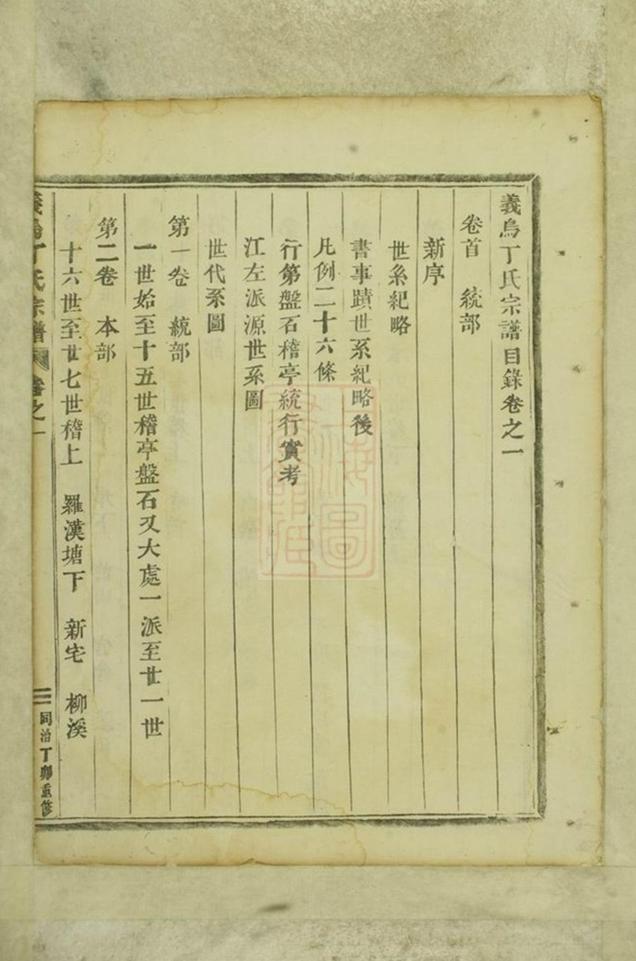 義烏丁氏宗譜目錄卷之一
卷首　統部
新序
世系紀略
書事蹟世系紀略後
凡例二十六條
行第盤石稽亭統行實考
江左派源世系圖
世代系圖
第一卷　統部
一世始至十五世稽亭盤石又大處一派至廿一世
第二卷　本部
十六世至廿七世稽上　羅漢塘下　新宅　柳溪
義烏丁氏宗譜　卷之一
同治丁卯重修